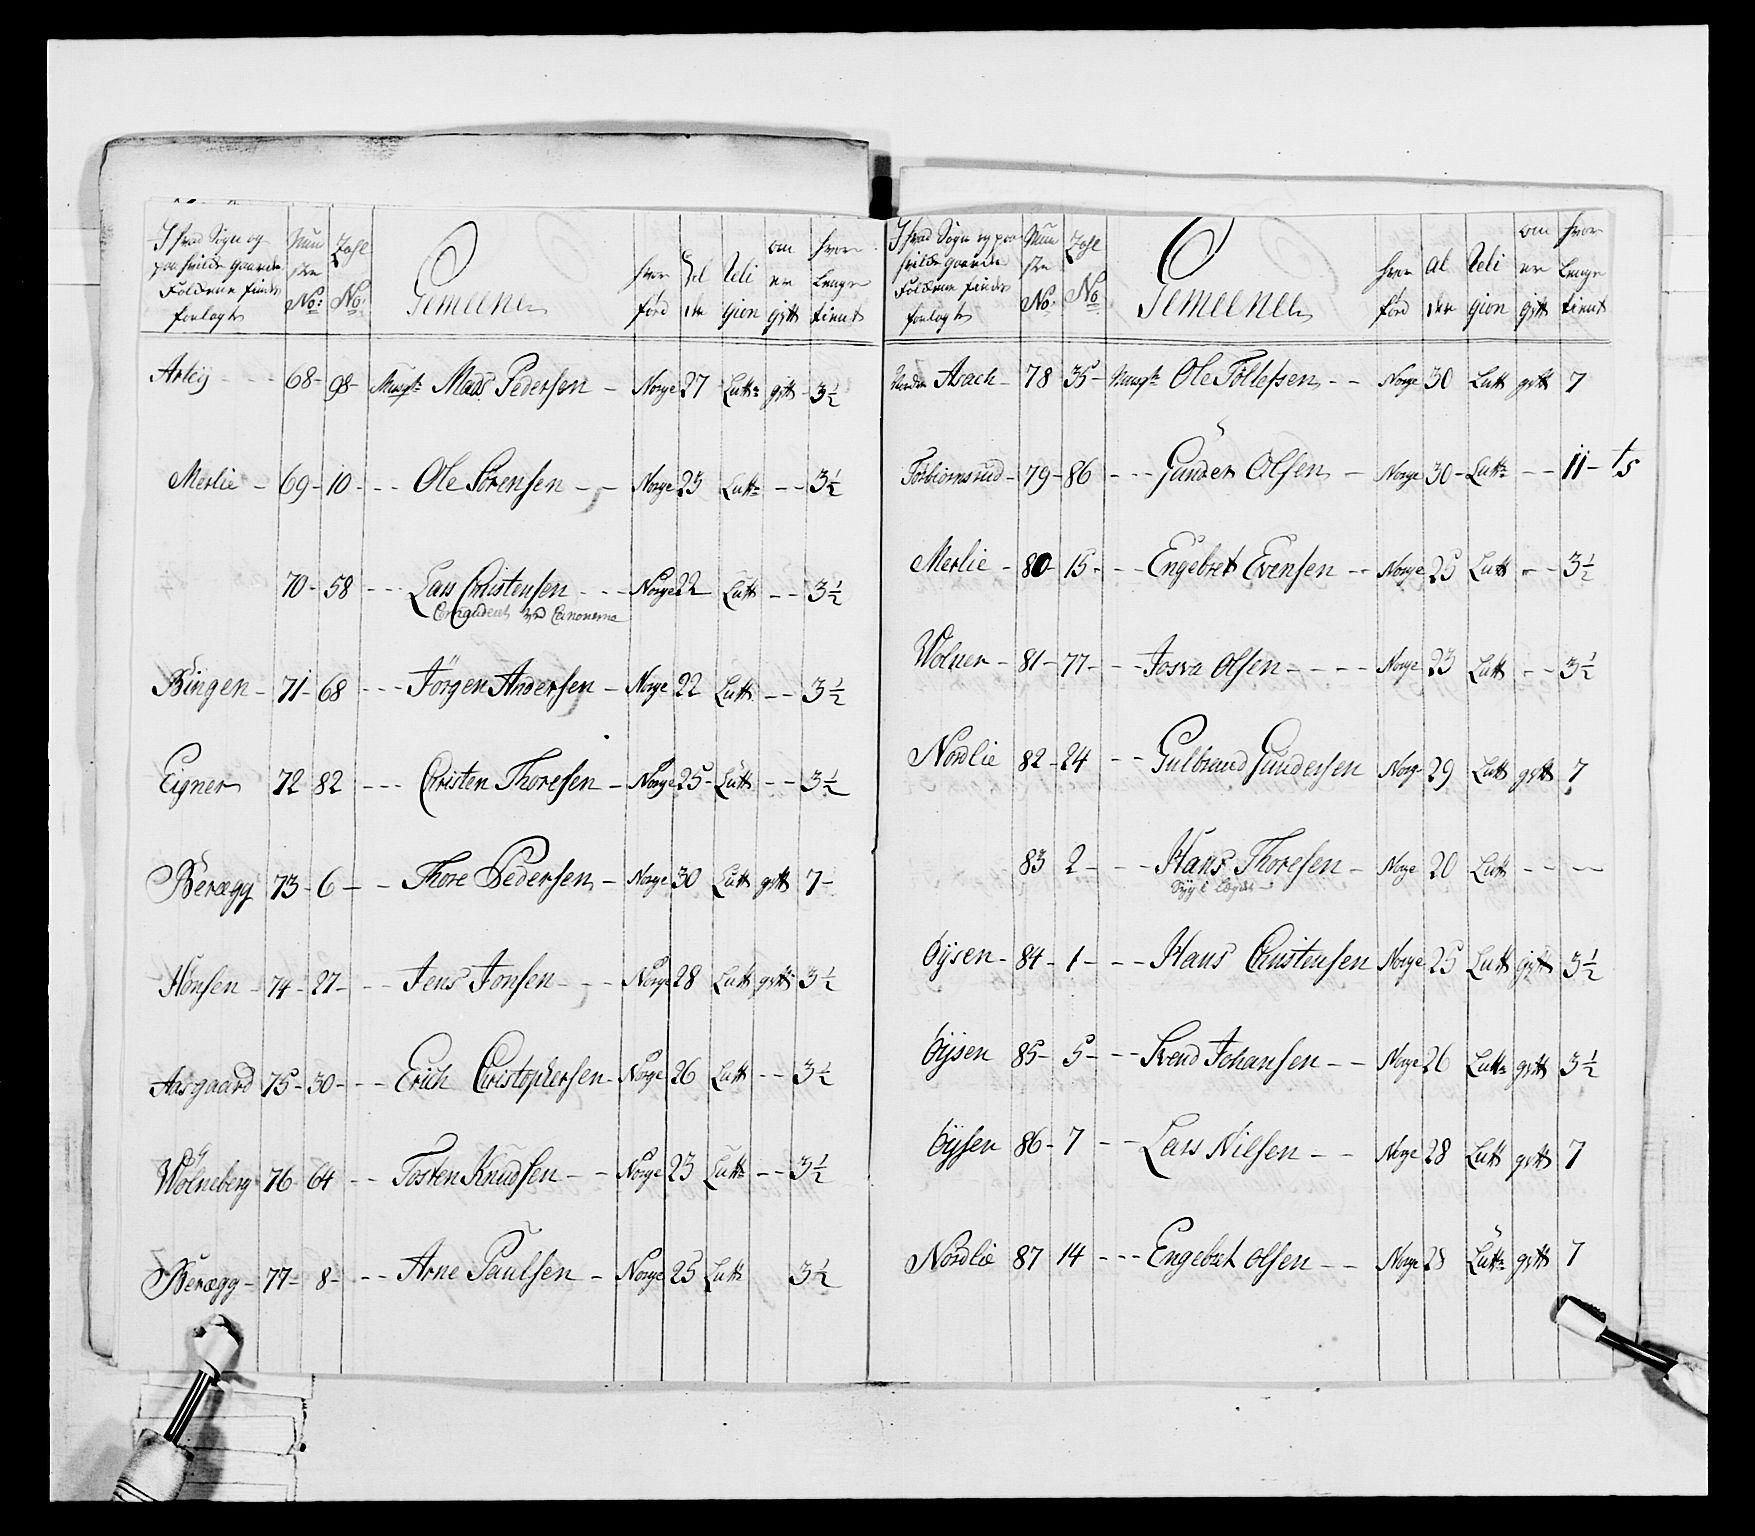 I hvad Sogn og
paa hvilde Gaarde
Folderne findes
forlagt
Mun
stre
No:
Zahl
No:
Gemeene
hvor
född
Al
der
Reli
gion
om
er
gift
hvor
lenge
tient
Arley - - - 68 - 98 - Musqt: Mads Pedersen - Norge 27 Luth: gift - 3½
Merlie - 69 - 10 - - - Ole Sörensen - - Norge 23 Luth: - - 3½
70 - 58 - - - Lars Christensen - - - Norge 22 Luth - - 3½
Comanderet ved Canonerne
Bingen - 71 - 68 - - - Jörgen Andersen - Norge 22 Luth - - 3½
Eigner 72 82 - - - Christen Thoresen - Norge 25 - Luth - - 3½
Beraegg 73 - 6 - - Thore Pedersen - Norge 30 Luth gift 7 -
Hönsen 74 - 27 - - - Jens Jonsen - - - Norge 28 Luth gift 3½
Aasgaard 75 - 30 - - - Erich Christophersen - Norge 26 Luth - - 3½
Wolneberg 76 64 - - Tosten Knudsen - - Norge 23 Luth - - 3½
Beraegg - 77 - 8 - - - Arne Paulsen - Norge 25 Luth 3½
I hvad Sogn og paa
hvilde Gaarde
Folderne findes
forlagt
Mun
stre
No:
Zahl
No
Gemeene
hvor
född
Al
der
Reli
gion
om
er
gift
hvor
lenge
tient
Asach - 78 35 - Musqt: Ole Tollefsen - - Norge 30 Luth gift 7
Torbiornsrud - 79 - 86 - - - Gunder Olsen - Norge 30 - Luth: - - 11 - ts
Merlie - 80 - 15 - - - Engebret Evensen - - Norge 25 Luth - - 3½
Wolner - 81 - 77 - - - Josva Olsen - - - - Norge 23 Luth - - 3½
Nordlie 82 - 24 - - Gulbrand Gundersen Norge 29 Luth gift 7
83 2 - - - Hans Thoresen - Norge 20 Luth - - - -
Syg i Lægdet
Öysen - 84 - 1 - - - Hans Christensen Norge 25 Luth gift 3½
Öysen 85 - 5 - - - Svend Johansen - - Norge 26 Luth: gift 3½
Öysen 86 - 7 - - Lars Nilsen - - Norge 28 Luth gift 7
Nordlie 87 14 - - - Engebret Olsen - - Norge 28 Luth: gift 7